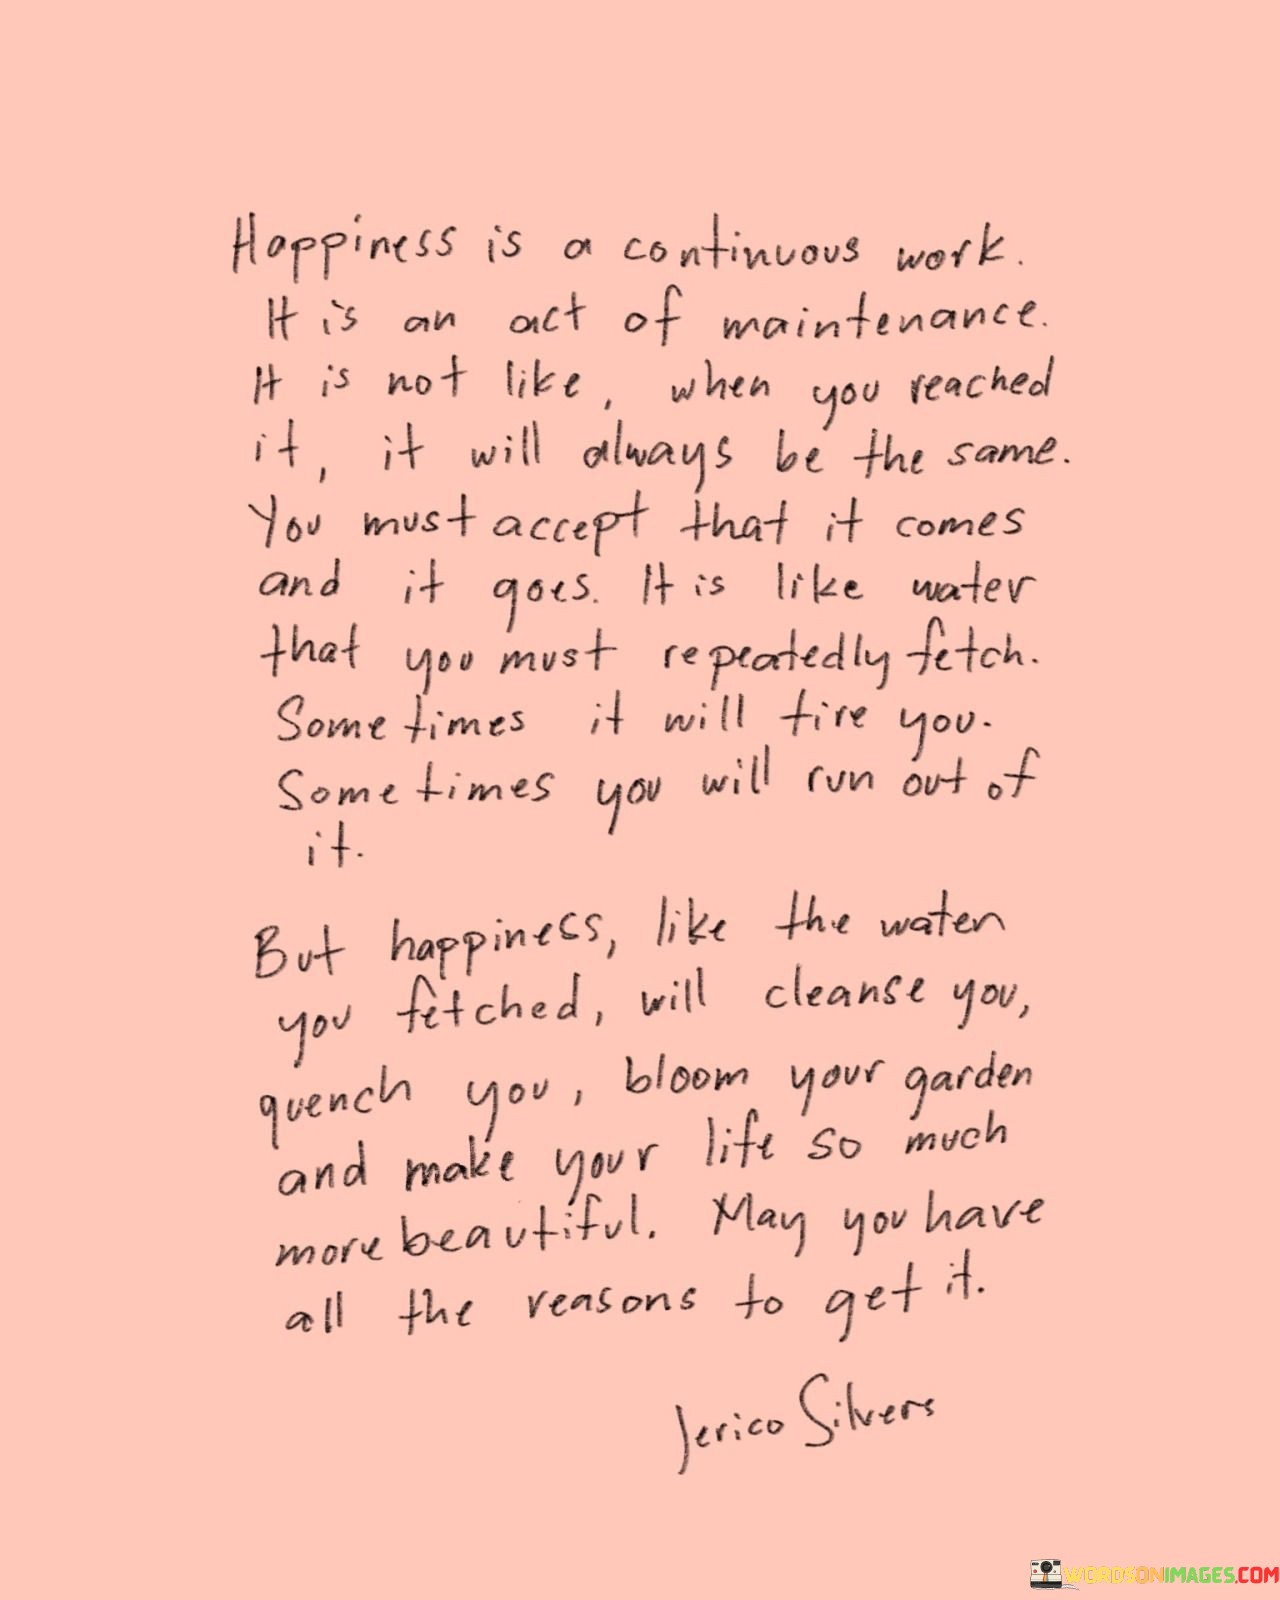 Happiness is a continuous work.
It is an act of maintenance.
It is not like, when you reached
it, it will always be the same.
You must accept that it comes
and it goes. It is like water
that you must repeatedly fetch.
Sometimes it will tire you.
Sometimes you will run out of
it.
But happiness, like the water
you fetched, will cleanse you,
quench you, bloom your garden
and make your life so much
more beautiful. May you have
all the reasons to get it.
Jerico Silvers
WORDSONIMAGES.COM